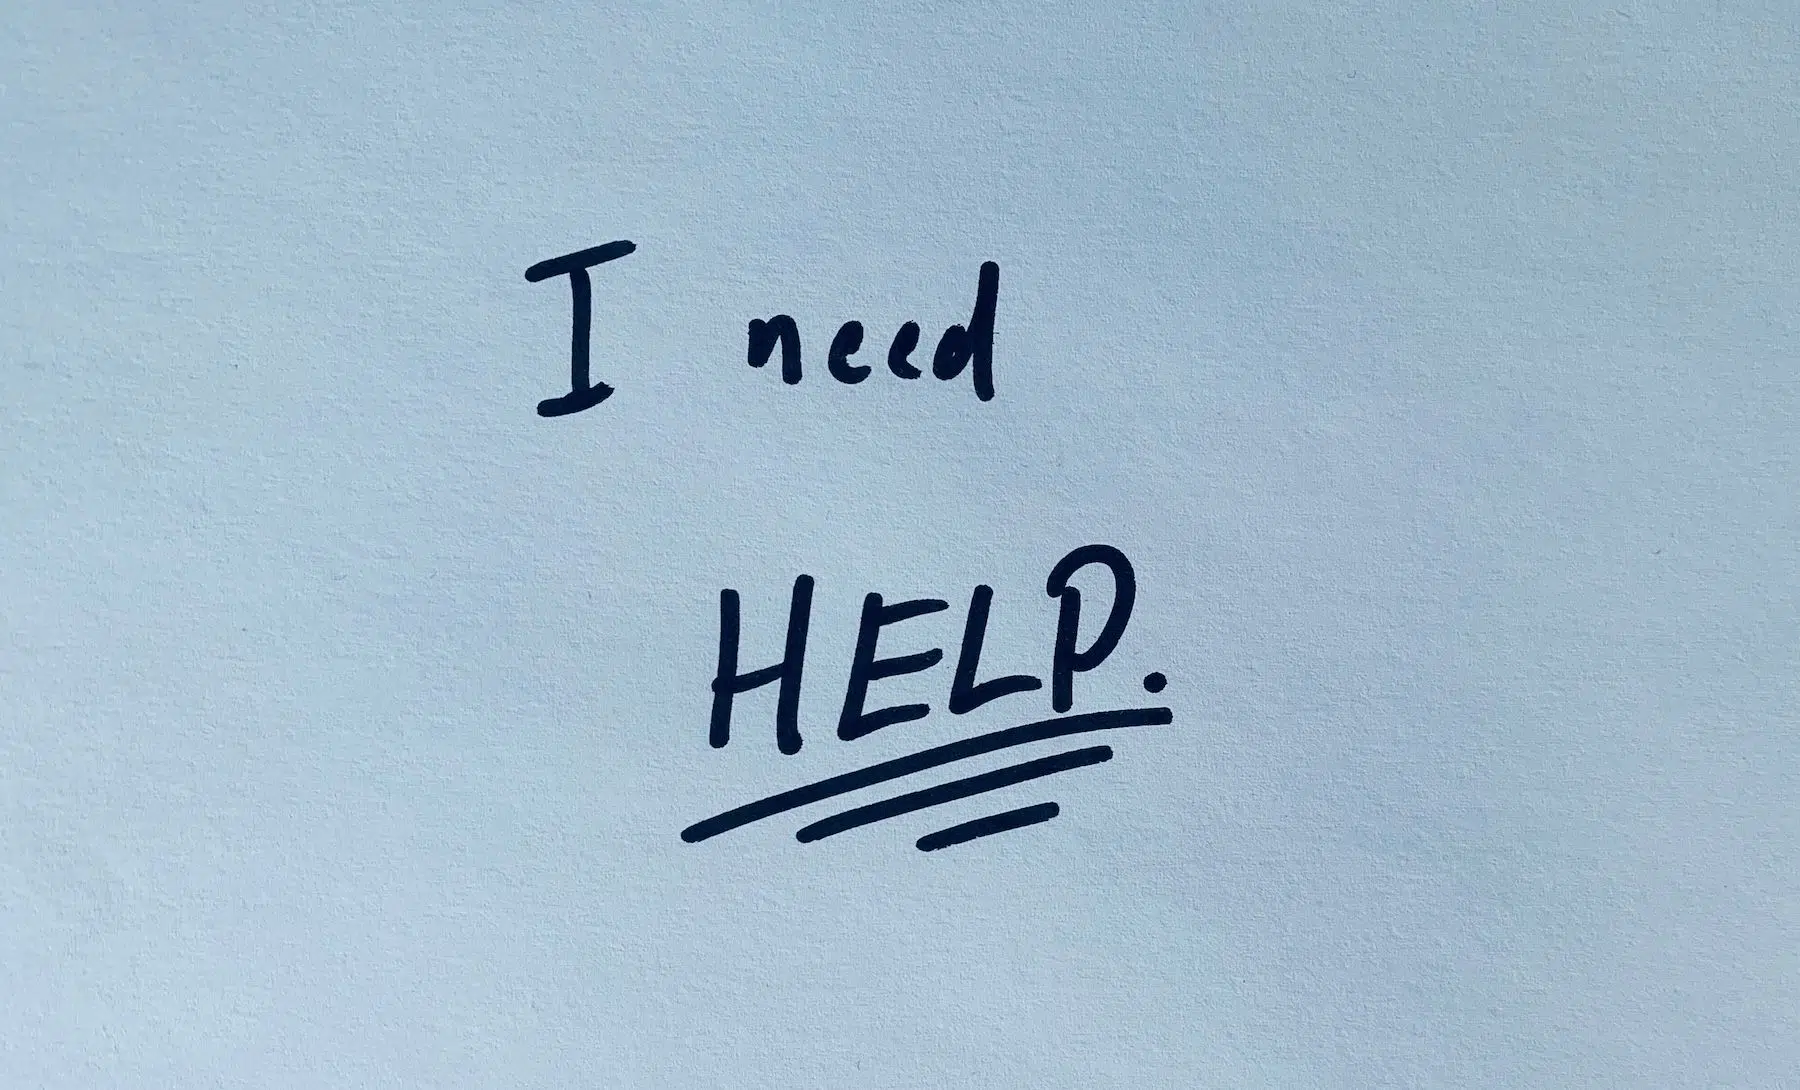 I need
HELP.